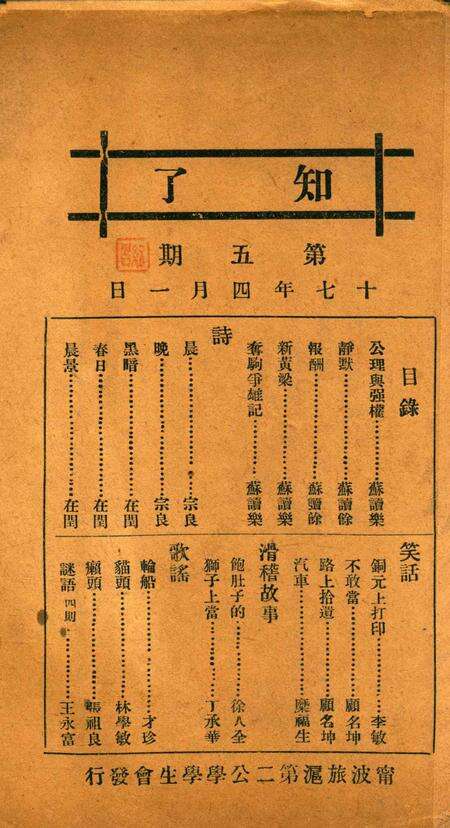 知了
第五期
十七年四月一日
目錄
公理與强權……蘇讀樂
靜默……蘇讀餘
報酬……蘇讀餘
新黃梁……蘇讀樂
奪駒爭雄記……蘇讀樂
詩
晨……宗良
晚……宗良
黑暗……在閏
春日……在閏
晨景……在閏
笑話
銅元上打印……李敏
不敢當……顧名坤
路上拾遺……顧名坤
汽車……糜福生
滑稽故事
飽肚子的……徐人全
獅子上當……丁承華
歌謠
輪船……才珍
貓頭……林學敏
癩頭……張祖良
謎語 四期……王永富
甯波旅滬第二公學學生會發行